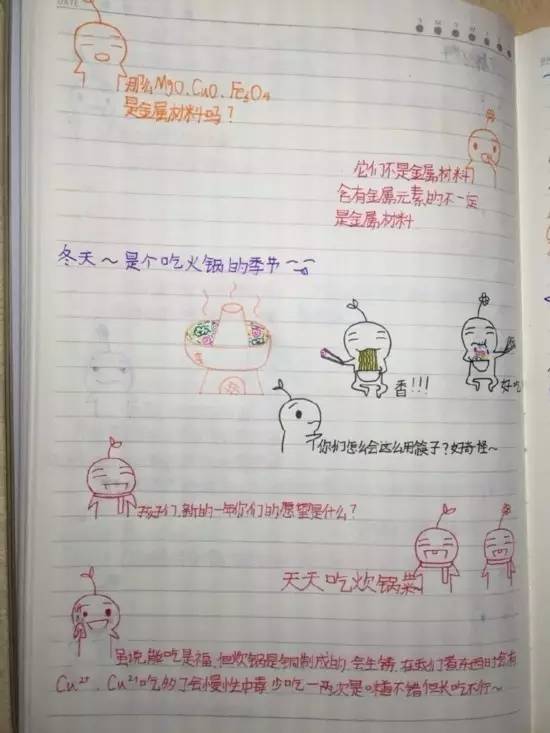 DATE
那么MgO、CuO、Fe3O4
是金属材料吗？
它们不是金属材料，
含有金属元素的不一定
是金属材料
冬天～是个吃火锅的季节
香!!!
好吃
你们怎么会这么用筷子？好奇怪～
孩子们，新的一年你们的愿望是什么？
天天吃炊锅菜
虽说能吃是福，但炊锅是铜制成的，会生锈，在我们煮东西时会有
Cu²⁺，Cu²⁺吃多了会慢性中毒，少吃一两次是口味不错但长吃不行～